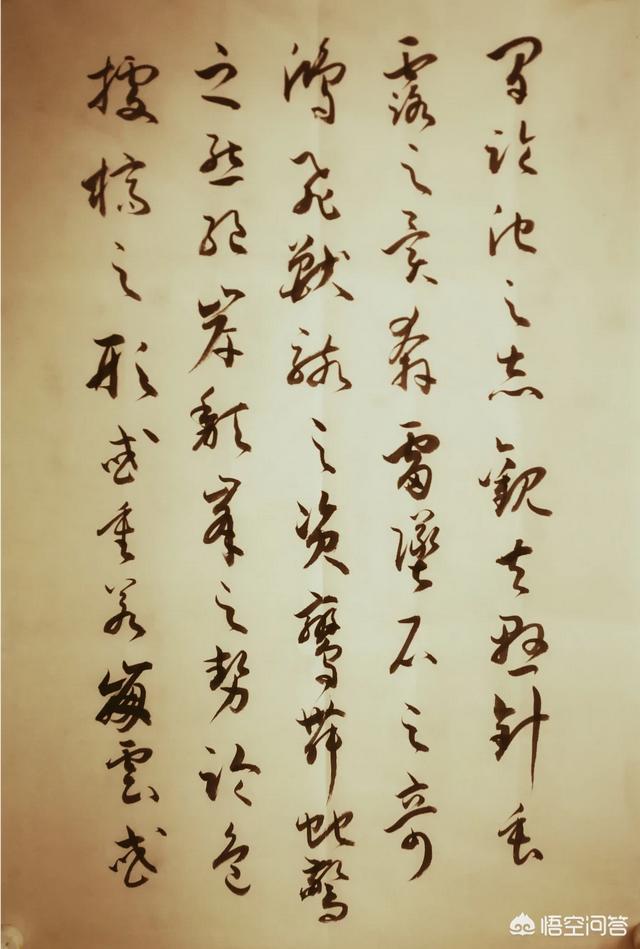 間臨池之志觀夫懸針垂
露之異奔雷墜石之奇
鴻飛獸駭之資鸞舞蛇驚
之態絕岸頹峯之勢臨危
據槁之形或重若崩雲或
悟空问答